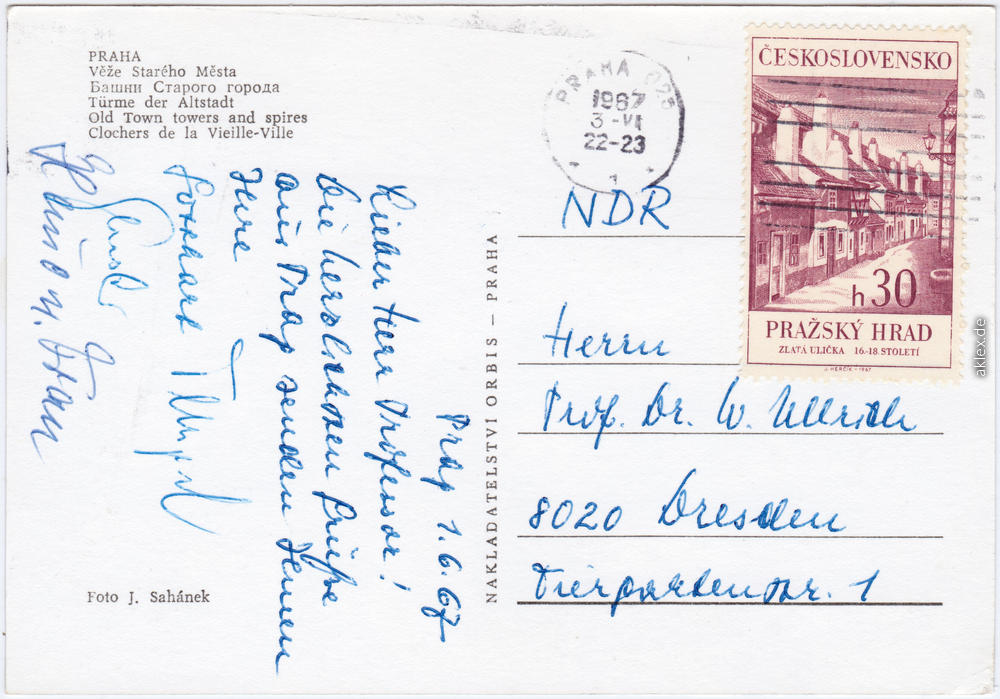 PRAHA
Věže Starého Města
Башни Старого города
Türme der Altstadt
Old Town towers and spires
Clochers de la Vieille-Ville
Prag 1.6.67
Lieber Herr Professor!
Die herzlichsten Grüße
aus Prag senden Ihnen
Ihre
Foto J. Sahánek
NAKLADATELSTVÍ ORBIS – PRAHA
PRAHA 025
1967
3-VI
22-23
1
ČESKOSLOVENSKO
h 30
PRAŽSKÝ HRAD
ZLATÁ ULIČKA 16.-18. STOLETÍ
J. HERČÍK - 1967
NDR
Herrn
Prof. Dr. W. Ullrich
8020 Dresden
Tiergartenstr. 1
aklex.de